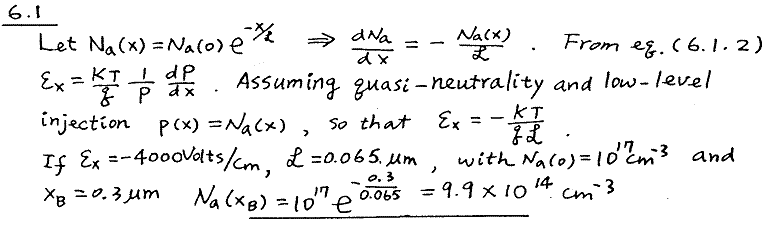 6.1
Let Na(x) = Na(0) e^{-x/ℒ} ⇒ dNa/dx = - Na(x)/ℒ . From eq. (6.1.2)
ℰx = KT/q 1/P dP/dx . Assuming quasi-neutrality and low-level
injection p(x) = Na(x) , so that ℰx = - KT/qℒ .
If ℰx = -4000Volts/cm, ℒ = 0.065 μm , with Na(0) = 10^{17} cm^{-3} and
XB = 0.3 μm Na(XB) = 10^{17} e^{-0.3/0.065} = 9.9 × 10^{14} cm^{-3}